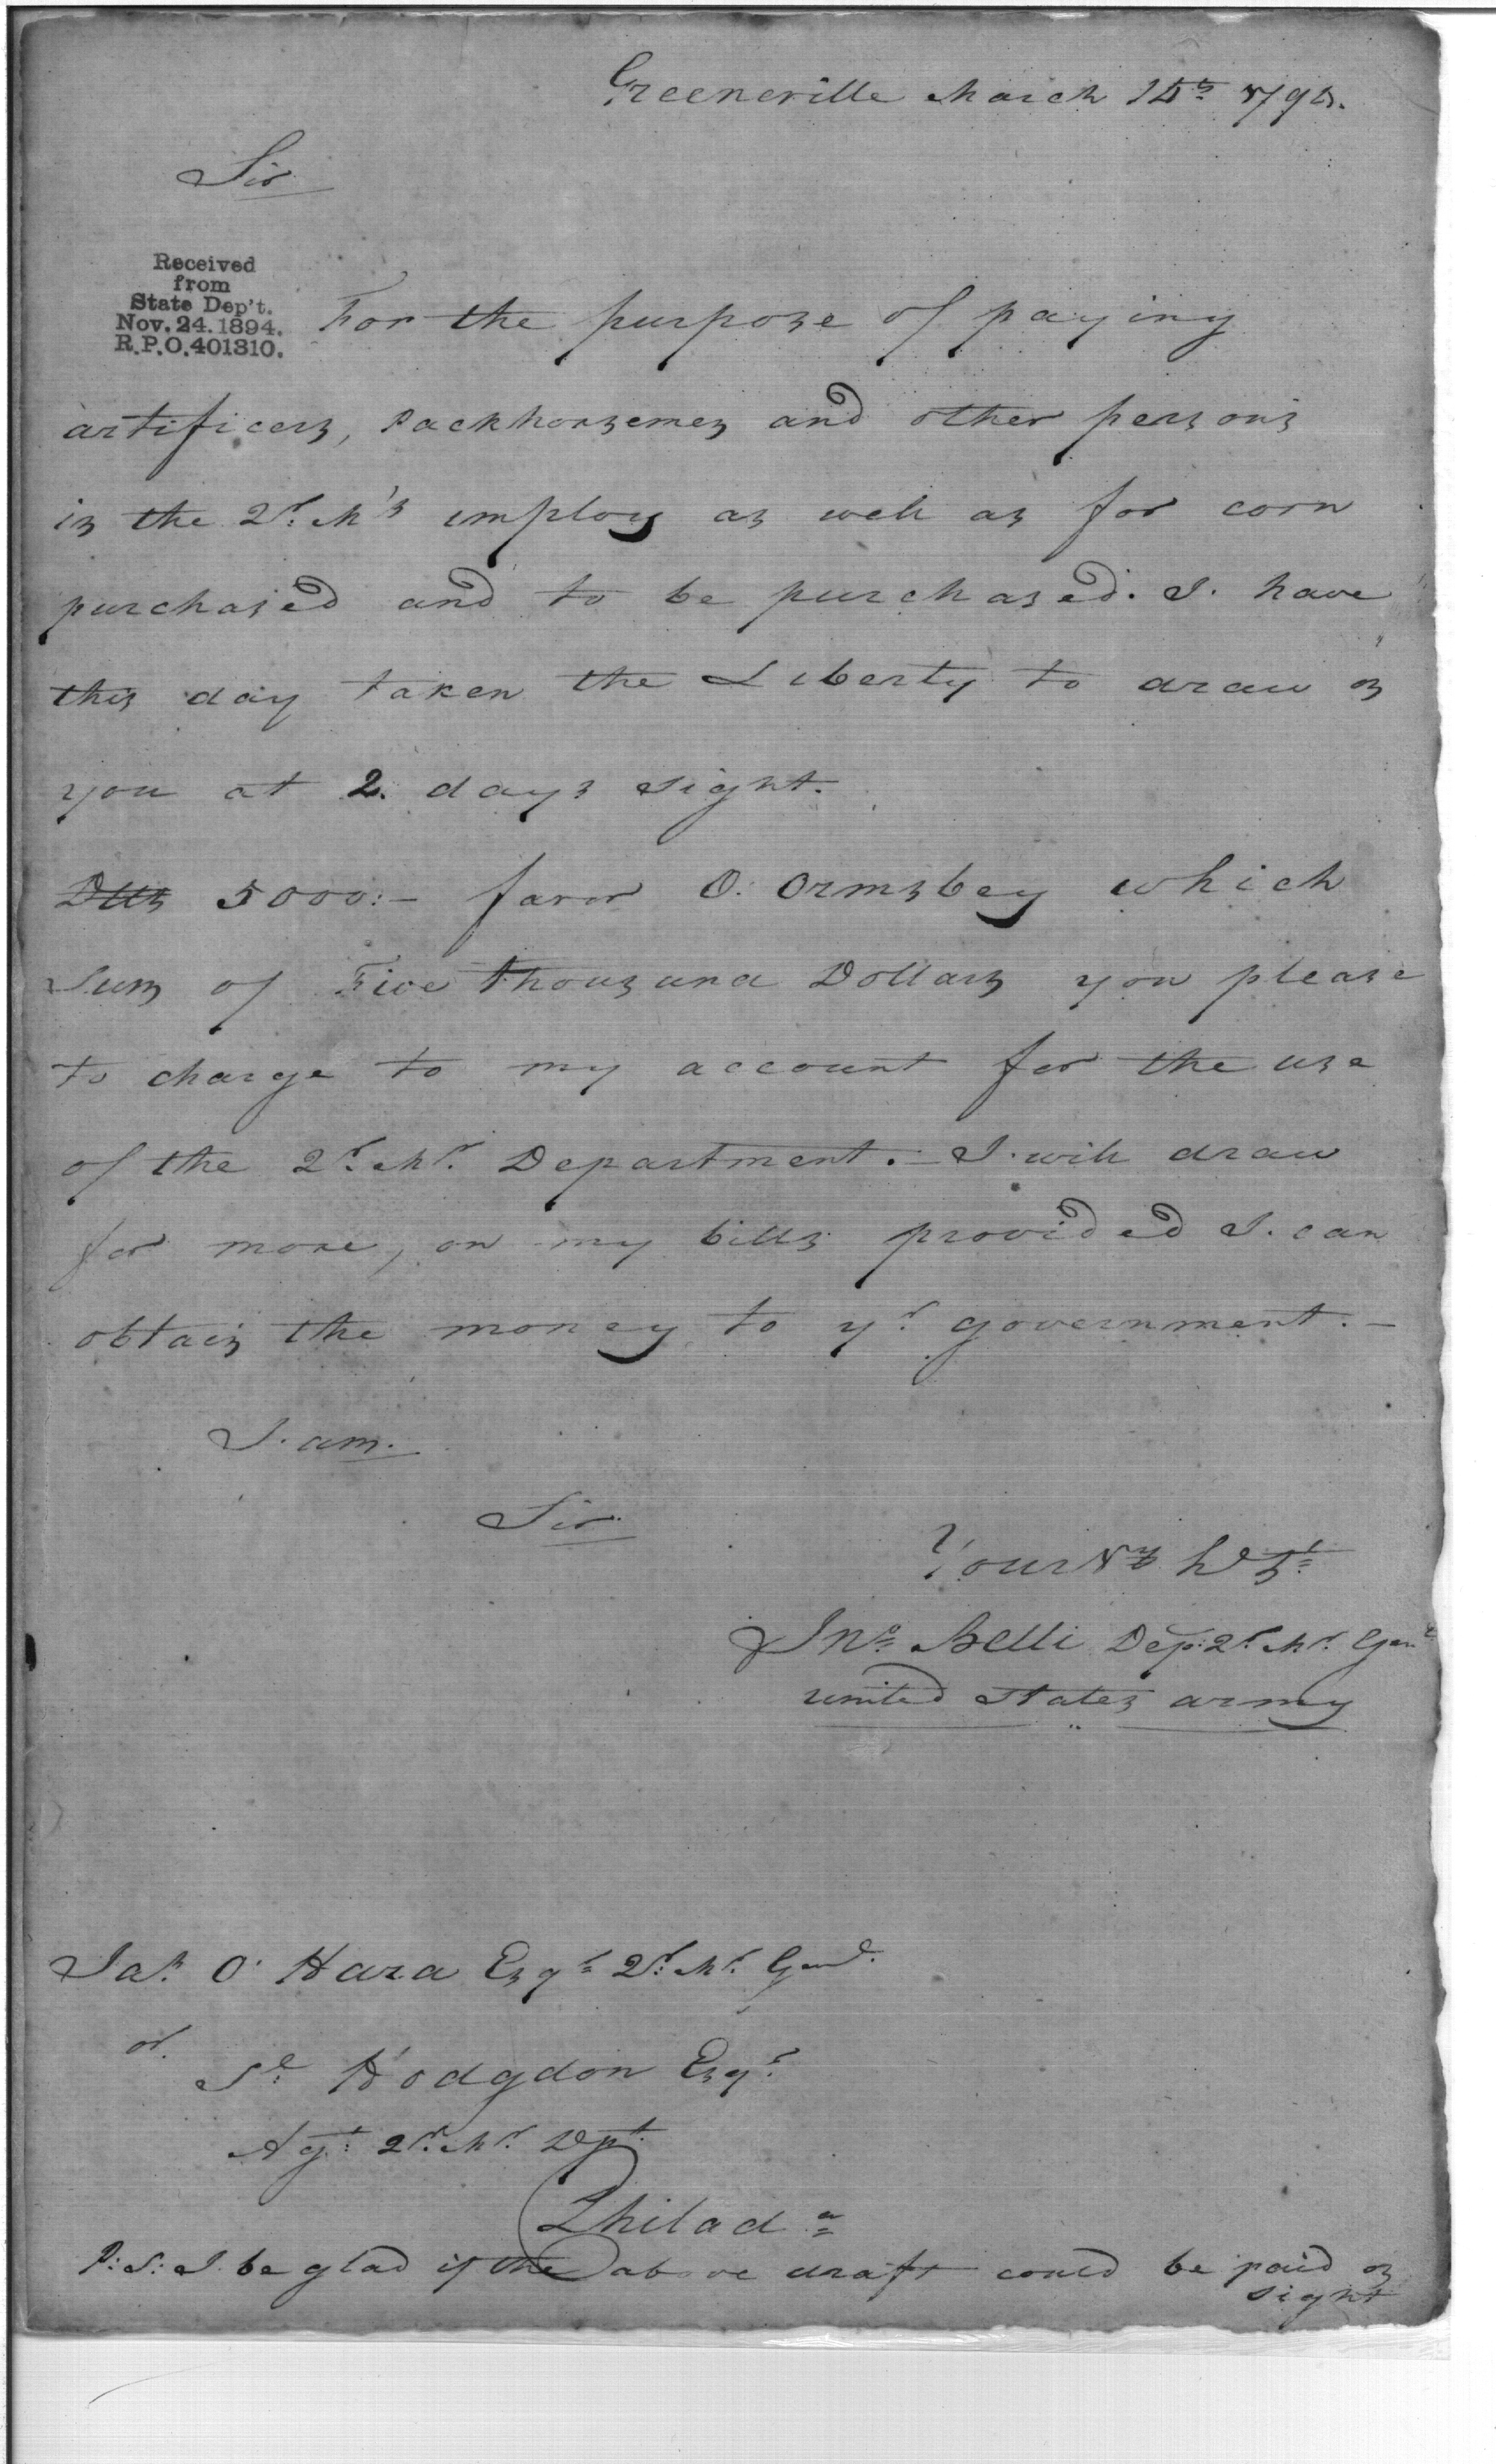 Greeneville March 15th 1795.
Sir
Received
from
State Dep't.
Nov. 24. 1894.
R.P.O. 401310.
For the purpose of paying
artificers, Packhorsemen and other persons
in the Qr. M's employ as well as for corn
purchased and to be purchased. I. have
this day taken the Liberty to draw on
you at 2. days sight.
Dlls 5000:- favor O. Ormsbey which
Sum of Five thousand Dollars you please
to charge to my account for the use
of the Qr. Mr. Department. - I. will draw
for more, on my bills provided I. can
obtain the money to yr. government. -
I. am.
Sir
Your
Jno. Belli Dep: Qr. Mr. Genl
united States army
Jas. O'Hara Esqr. Qr. Mr. Genl.
or.
Sl. Hodgdon Esqr.
Agt. Qr. Mr. Dpt.
Philada
P:S: I. be glad if the above draft could be paid on
sight